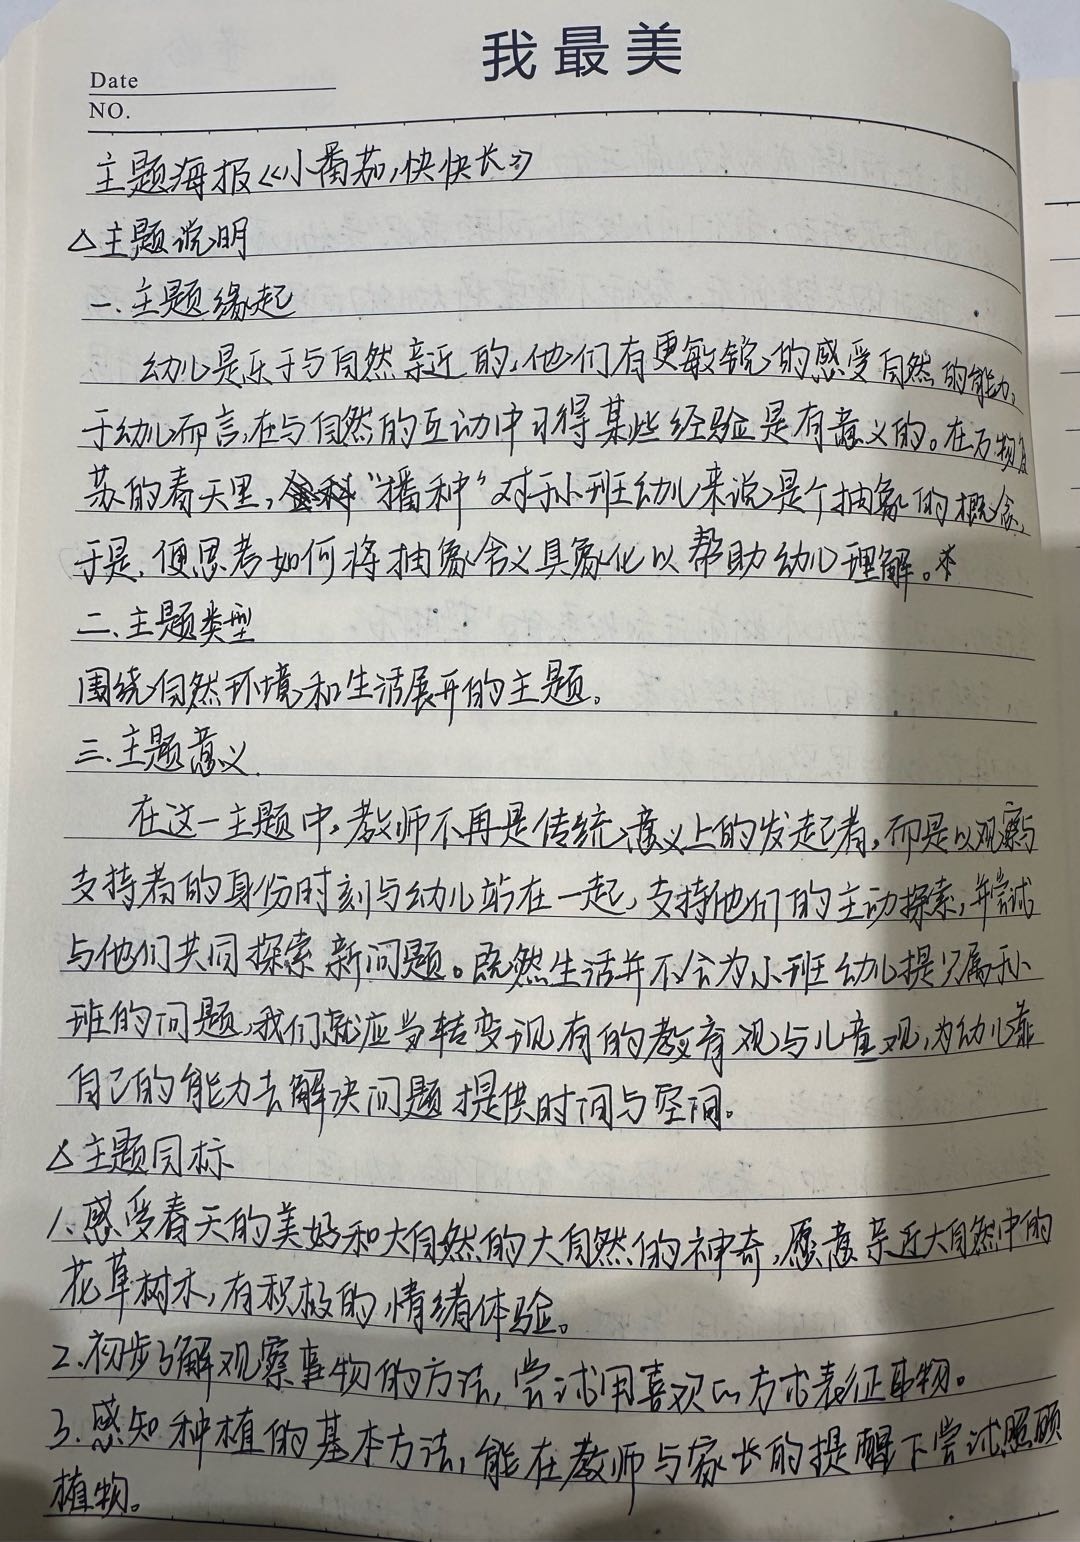 我最美
Date
NO.
主题海报《小番茄,快快长》
△主题说明
一.主题缘起
幼儿是乐于与自然亲近的,他们有更敏锐的感受自然的能力,
于幼儿而言,在与自然的互动中习得某些经验是有意义的。在万物复
苏的春天里,"播种"对于小班幼儿来说是个抽象的概念,
于是,便思考如何将抽象含义具象化以帮助幼儿理解。
二、主题类型
围绕自然环境和生活展开的主题。
三.主题意义.
在这一主题中,教师不再是传统意义上的发起者,而是以观察与
支持者的身份时刻与幼儿站在一起,支持他们的主动探索,并尝试
与他们共同探索新问题。既然生活并不会为小班幼儿提只属于小
班的问题,我们就应当转变现有的教育观与儿童观,为幼儿靠
自己的能力去解决问题提供时间与空间。
△主题目标
1.感受春天的美好和大自然的大自然的神奇,愿意亲近大自然中的
花草树木,有积极的情绪体验。
2.初步了解观察事物的方法,尝试用喜欢的方式表征事物。
3.感知种植的基本方法,能在教师与家长的提醒下尝试照顾
植物。